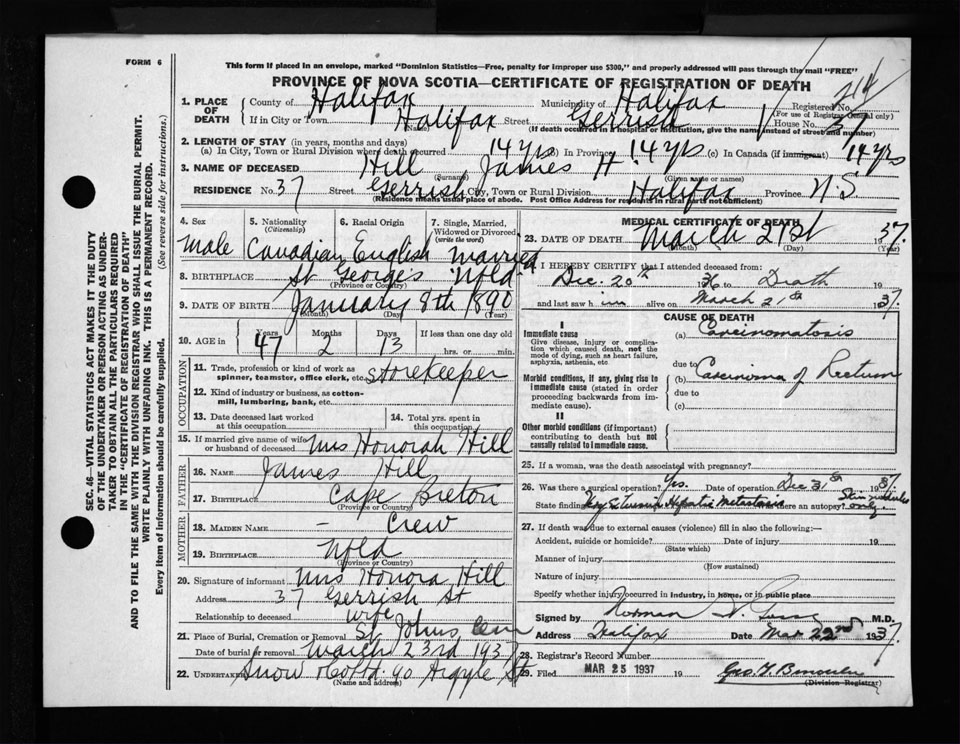 FORM 6
This form if placed in an envelope, marked "Dominion Statistics—Free, penalty for improper use $300," and properly addressed will pass through the mail "FREE"
PROVINCE OF NOVA SCOTIA—CERTIFICATE OF REGISTRATION OF DEATH
214
1. PLACE OF DEATH County of Halifax Municipality of Halifax Registered No.
(For use of Registrar General only)
If in City or Town Halifax Street Gerrish House No. 37
(Name) (If death occurred in a hospital or institution, give the name instead of street and number)
2. LENGTH OF STAY (in years, months and days)
(a) In City, Town or Rural Division where death occurred 14 yrs (b) In Province 14 yrs (c) In Canada (if immigrant) 14 yrs
3. NAME OF DECEASED Hill James H
(Surname) (Given name or names)
RESIDENCE No. 37 Street Gerrish City, Town or Rural Division Halifax Province N.S.
(Residence means usual place of abode. Post Office Address for residents in rural parts not sufficient)
4. Sex 5. Nationality (Citizenship) 6. Racial Origin 7. Single, Married, Widowed or Divorced (write the word)
Male Canadian English Married
8. BIRTHPLACE St Georges Nfld
(Province or Country)
9. DATE OF BIRTH January 8th 1890
(Month) (Day) (Year)
10. AGE in Years Months Days If less than one day old
47 2 13 hrs. or min.
OCCUPATION
11. Trade, profession or kind of work as spinner, teamster, office clerk, etc. Storekeeper
12. Kind of industry or business, as cotton-mill, lumbering, bank, etc.
13. Date deceased last worked at this occupation 14. Total yrs. spent in this occupation
15. If married give name of wife or husband of deceased Mrs Honorah Hill
FATHER
16. NAME James Hill
17. BIRTHPLACE Cape Breton
(Province or Country)
MOTHER
18. MAIDEN NAME — Crew
19. BIRTHPLACE Nfld
(Province or Country)
20. Signature of informant Mrs Honora Hill
Address 37 Gerrish St
Relationship to deceased wife
21. Place of Burial, Cremation or Removal St Johns Cem
Date of burial or removal March 23rd 1937
22. UNDERTAKER Snow & Co Ltd. 90 Argyle St
(Name and address)
MEDICAL CERTIFICATE OF DEATH
23. DATE OF DEATH March 21st 1937.
(Month) (Day) (Year)
I HEREBY CERTIFY that I attended deceased from:
Dec. 20th 1936 to Death
and last saw him alive on March 21st 1937.
CAUSE OF DEATH
I
Immediate cause (a) Carcinomatosis
Give disease, injury or complication which caused death, not the mode of dying, such as heart failure, asphyxia, asthenia, etc
due to
Morbid conditions, if any, giving rise to immediate cause (stated in order proceeding backwards from immediate cause). (b) Carcinoma of Rectum
due to
(c)
II
Other morbid conditions (if important) contributing to death but not causally related to immediate cause.
25. If a woman, was the death associated with pregnancy?
26. Was there a surgical operation? Yes. Date of operation Dec 31st
State findings Hepatic Metastasis Was there an autopsy? only.
27. If death was due to external causes (violence) fill in also the following:—
Accident, suicide or homicide? Date of injury 19
(State which)
Manner of injury
(How sustained)
Nature of injury
Specify whether injury occurred in industry, in home, or in public place
Signed by Norman M.D.
Address Halifax Date Mar 22nd 1937.
28. Registrar's Record Number
29. Filed MAR 25 1937 19
(Division Registrar)
SEC. 46—VITAL STATISTICS ACT MAKES IT THE DUTY
OF THE UNDERTAKER OR PERSON ACTING AS UNDER-
TAKER TO OBTAIN ALL THE PARTICULARS REQUIRED
IN THE "CERTIFICATE OF REGISTRATION OF DEATH"
AND TO FILE THE SAME WITH THE DIVISION REGISTRAR WHO SHALL ISSUE THE BURIAL PERMIT.
WRITE PLAINLY WITH UNFADING INK. THIS IS A PERMANENT RECORD.
Every item of information should be carefully supplied. (See reverse side for instructions.)